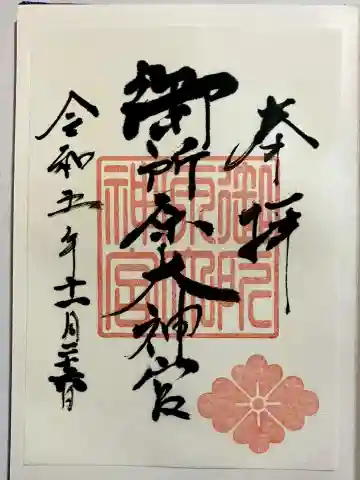 奉拝
御所原大神宮
令和五年十一月二十六日
御所
原大
神宮